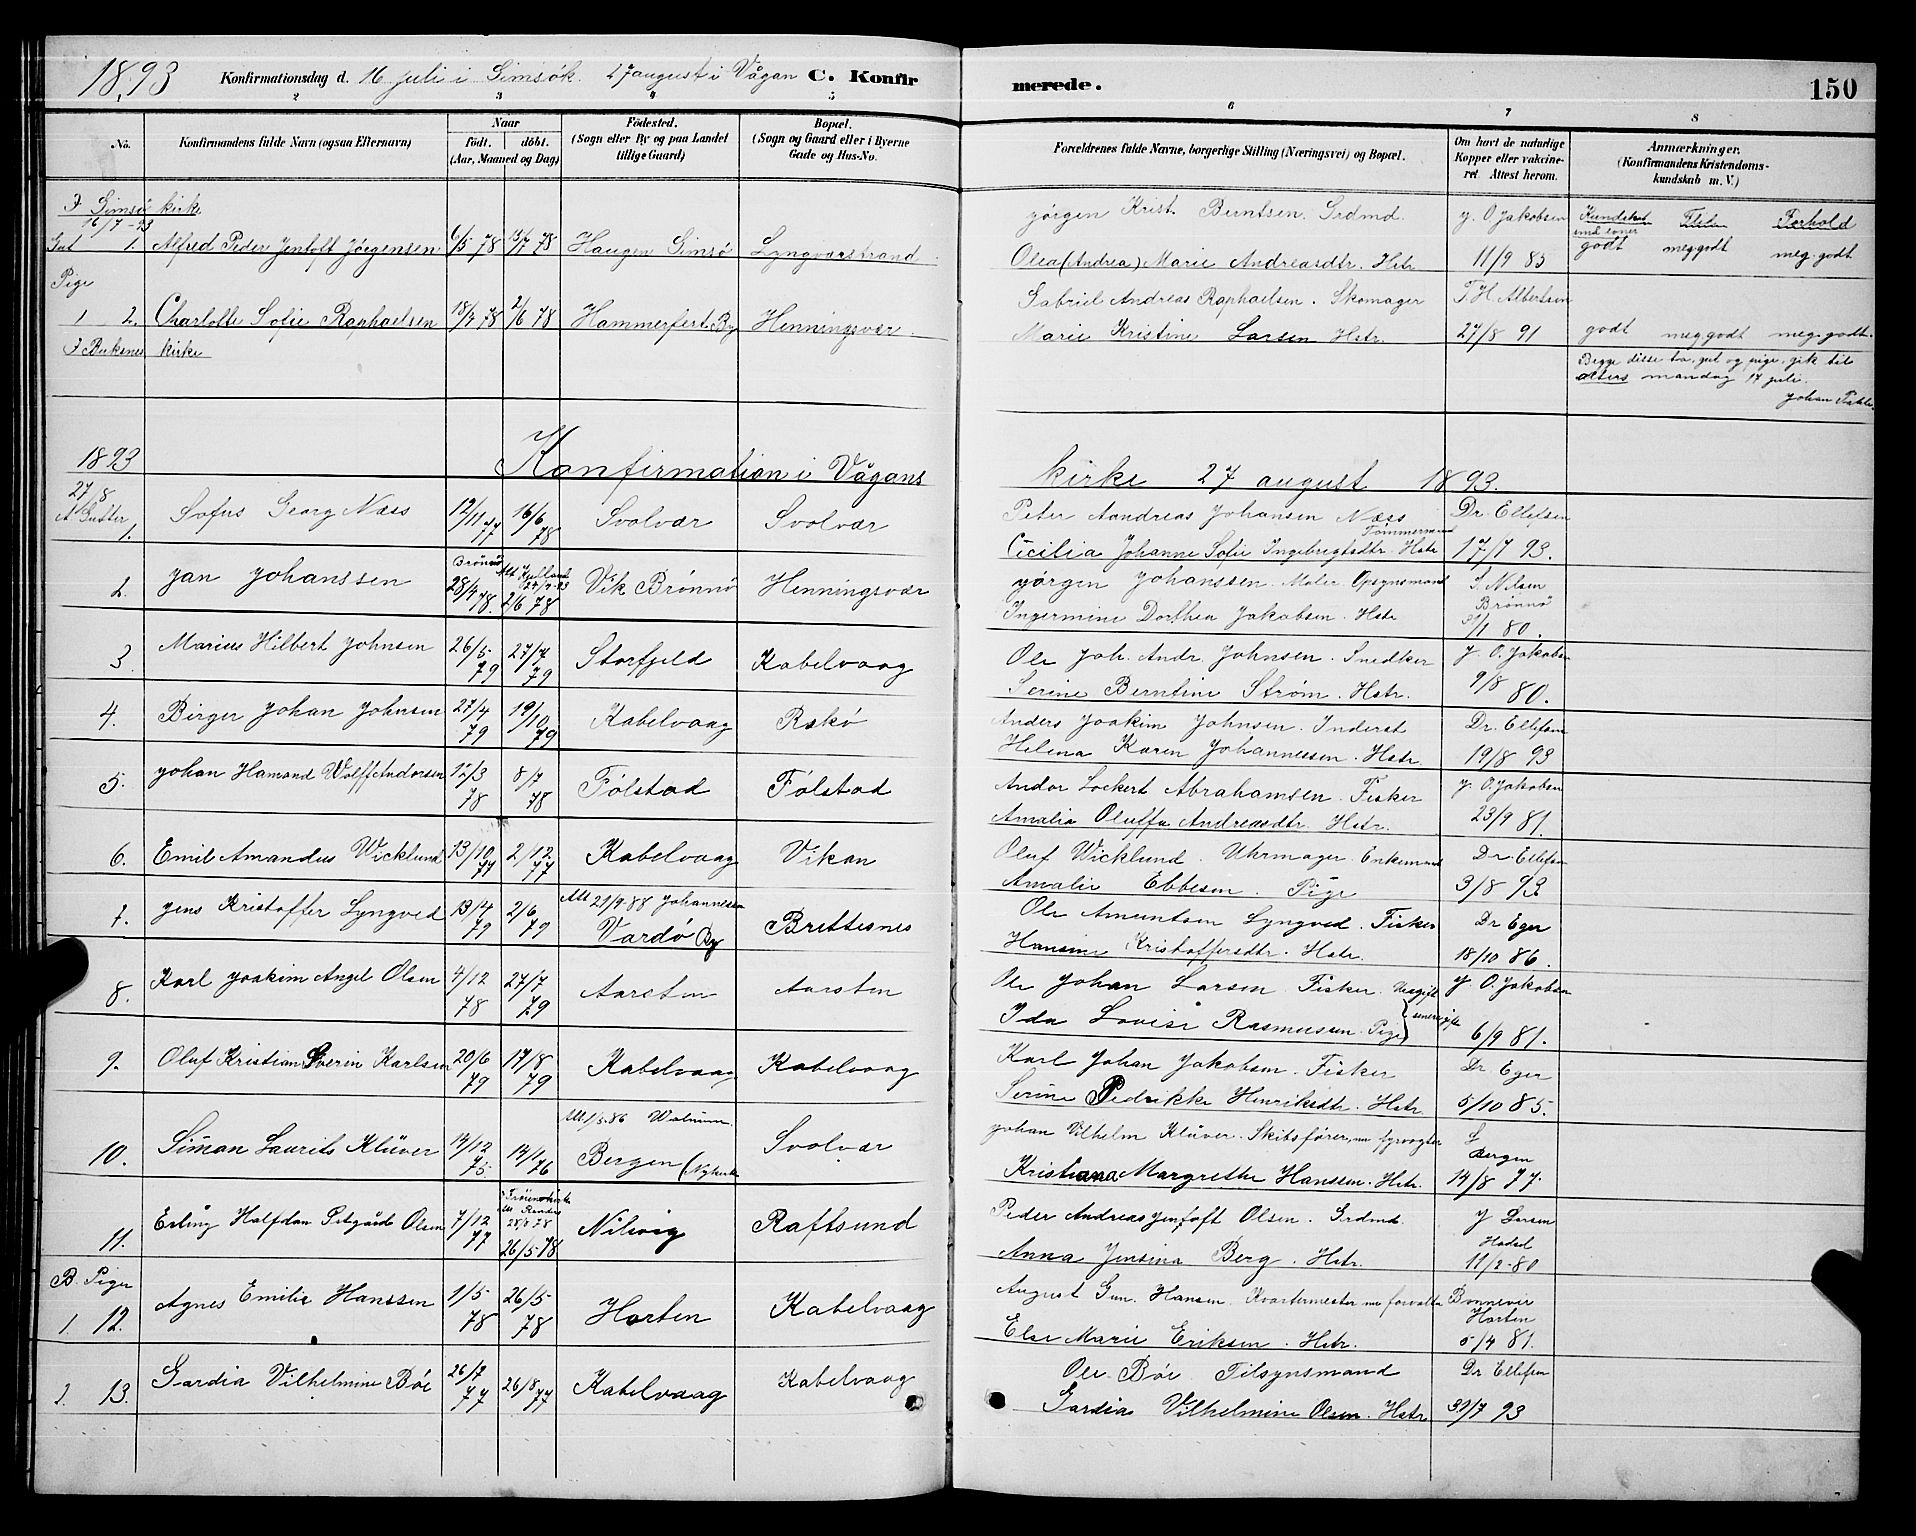 1893 Konfirmationsdag d. 16 juli i Gimsø k. 27 august i Vågan C. Konfirmerede. 150
2 3 4 5 6 7 8
No. Konfirmandens fulde Navn (ogsaa Efternavn) Naar født. døbt. (Aar, Maaned og Dag) Fødested. (Sogn eller By og paa Landet tillige Gaard) Bopæl. (Sogn og Gaard eller i Byerne Gade og Hus-No.) Forældrenes fulde Navne, borgerlige Stilling (Næringsvei) og Bopæl. Om havt de naturlige Kopper eller vaccineret. Attest herom. Anmærkninger. (Konfirmandens Kristendomskundskab m. V.)
I Gimsø kirke
16/7-93
Jørgen Krist. Berntsen. Grdmd. J. O. Jakobsen Kundskab Flid Forhold
Gut 1. Alfred Peder Jentoft Jørgensen 6/5 78 13/7 78 Haugen Gimsø Lyngværstrand Olea (Andrea) Marie Andreasdtr. Hstr. 11/9 85 godt meg.godt meg.godt
Pige
Gabriel Andreas Raphaelsen. Skomager T. H. Albertsen
1 2. Charlotte Sofie Raphaelsen 18/4 78 2/6 78 Hammerfest By Henningsvær Marie Kristine Larsen Hstr. 27/8 91 godt meg.godt meg.godt.
I Buksnes kirke
Begge disse to, gut og pige, gik til
alters mandag 17 juli.
Johan
1893 Konfirmation i Vågans kirke 27 august 1893.
27/8
A. Gutter
1. Sofus Georg Næss 12/11 77 16/6 78 Svolvær Svolvær Peter Andreas Johansen Næss Tømmermand Dr. Ellefsen
Cicilia Johanne Sofie Ingebrigtsdtr. Hstr. 17/7 93.
2. Jan Johanssen Brønnø 28/4 78. 2/6 78 Vik Brønnø Henningsvær Jørgen Johanssen. Maler Opsynsmand S. Nilsen Brønnø
Ingermine Dorthea Jakobsen. Hstr. 31/1 80.
3. Marius Hilbert Johnsen 26/5 79 27/7 79 Storfjeld Kabelvaag Ole Joh. Andr. Johnsen. Snedker J. O. Jakobsen
Serine Berntine Strøm. Hstr. 9/8 80.
4. Birger Johan Johnsen 27/4 79 19/10 79 Kabelvaag Rskø Anders Joakim Johnsen. Inderst Dr. Ellefsen
Helena Karen Johannessen. Hstr. 19/8 93
5. Johan Hamand Wolff Andorsen 12/3 78 8/7 78 Følstad Følstad Andor Lockert Abrahamsen. Fisker J. O. Jakobsen
Amalia Oluffa Andreasdtr. Hstr. 23/9 81.
6. Emil Amandus Wicklund 13/10 77 2/12 77 Kabelvaag Vikan Oluf Wicklund. Uhrmager. Enkemand Dr. Ellefsen
Amalie Ebbesen. Pige 3/8 93
7. Jens Kristoffer Lyngved 13/4 79 2/6 79 Att 21/9-88 Johannessen Vardø By Brettesnes Ole Amundsen Lyngved. Fisker Dr Eger
Hansine Kristoffersdtr. Hstr. 18/10 86.
8. Karl Joakim Angel Olsen 4/12 78 27/7 79 Aarsten Aarsten Ole Johan Larsen Fisker. Ungift J. O. Jakobsen
Ida Lovise Rasmussen. Pige senere gift 6/9 81.
9. Oluf Kristian Severin Karlsen 20/6 79 17/8 79 Kabelvaag Kabelvaag Karl Johan Jakobsen. Fisker Dr. Eger
Serine Pedrikke Henriksdtr. Hstr. 5/10 85.
10. Siman Laurits Klüver 14/12 75. 14/1 76 Att 1/5-86 Walnum. Bergen (Nykirke Svolvær Johan Vilhelm Klüver. Skibsfører, nu fyrvogter Bergen
Kristiana Margrethe Hansen. Hstr. 14/8 77.
11. Erling Halfdan Petgård Olsen 7/12 77 28/8 78 26/5-78 Nilvig Raftsund Peder Andreas Jentoft Olsen. Grdmd. J Larsen Hadsel
Anna Jensina Berg. Hstr. 11/2-80
B. Piger
1. 12. Agnes Emilie Hanssen 1/5 78 26/5 78 Horten Kabelvaag August Gun. Hansen. Kvartermester nu forvalter Bonnevie Horten
Else Marie Eriksen. Hstr. 5/4 81.
2. 13. Gardia Vilhelmine Bøe 26/7 77 26/8 77 Kabelvaag Kabelvaag Ole Bøe Tilsynsmand Dr Ellefsen
Gardia Vilhelmine Olsen. Hstr 31/7 93